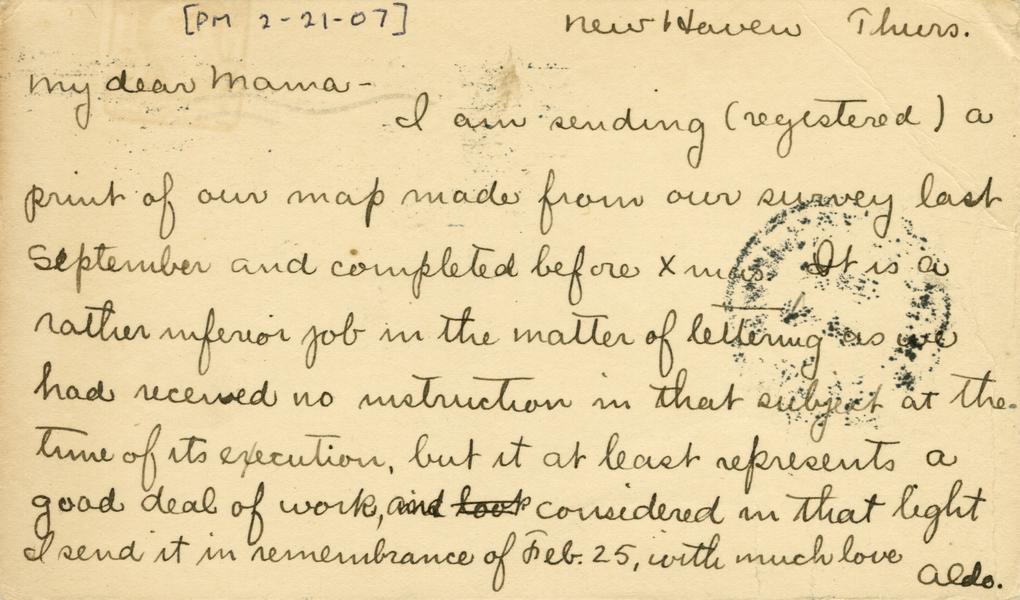 [PM 2-21-07]
New Haven Thurs.
My dear Mama -
I am sending (registered) a
print of our map made from our survey last
September and completed before Xmas. It is a
rather inferior job in the matter of lettering as we
had received no instruction in that subject at the
time of its execution, but it at least represents a
good deal of work, and look considered in that light
I send it in remembrance of Feb. 25, with much love
Aldo.